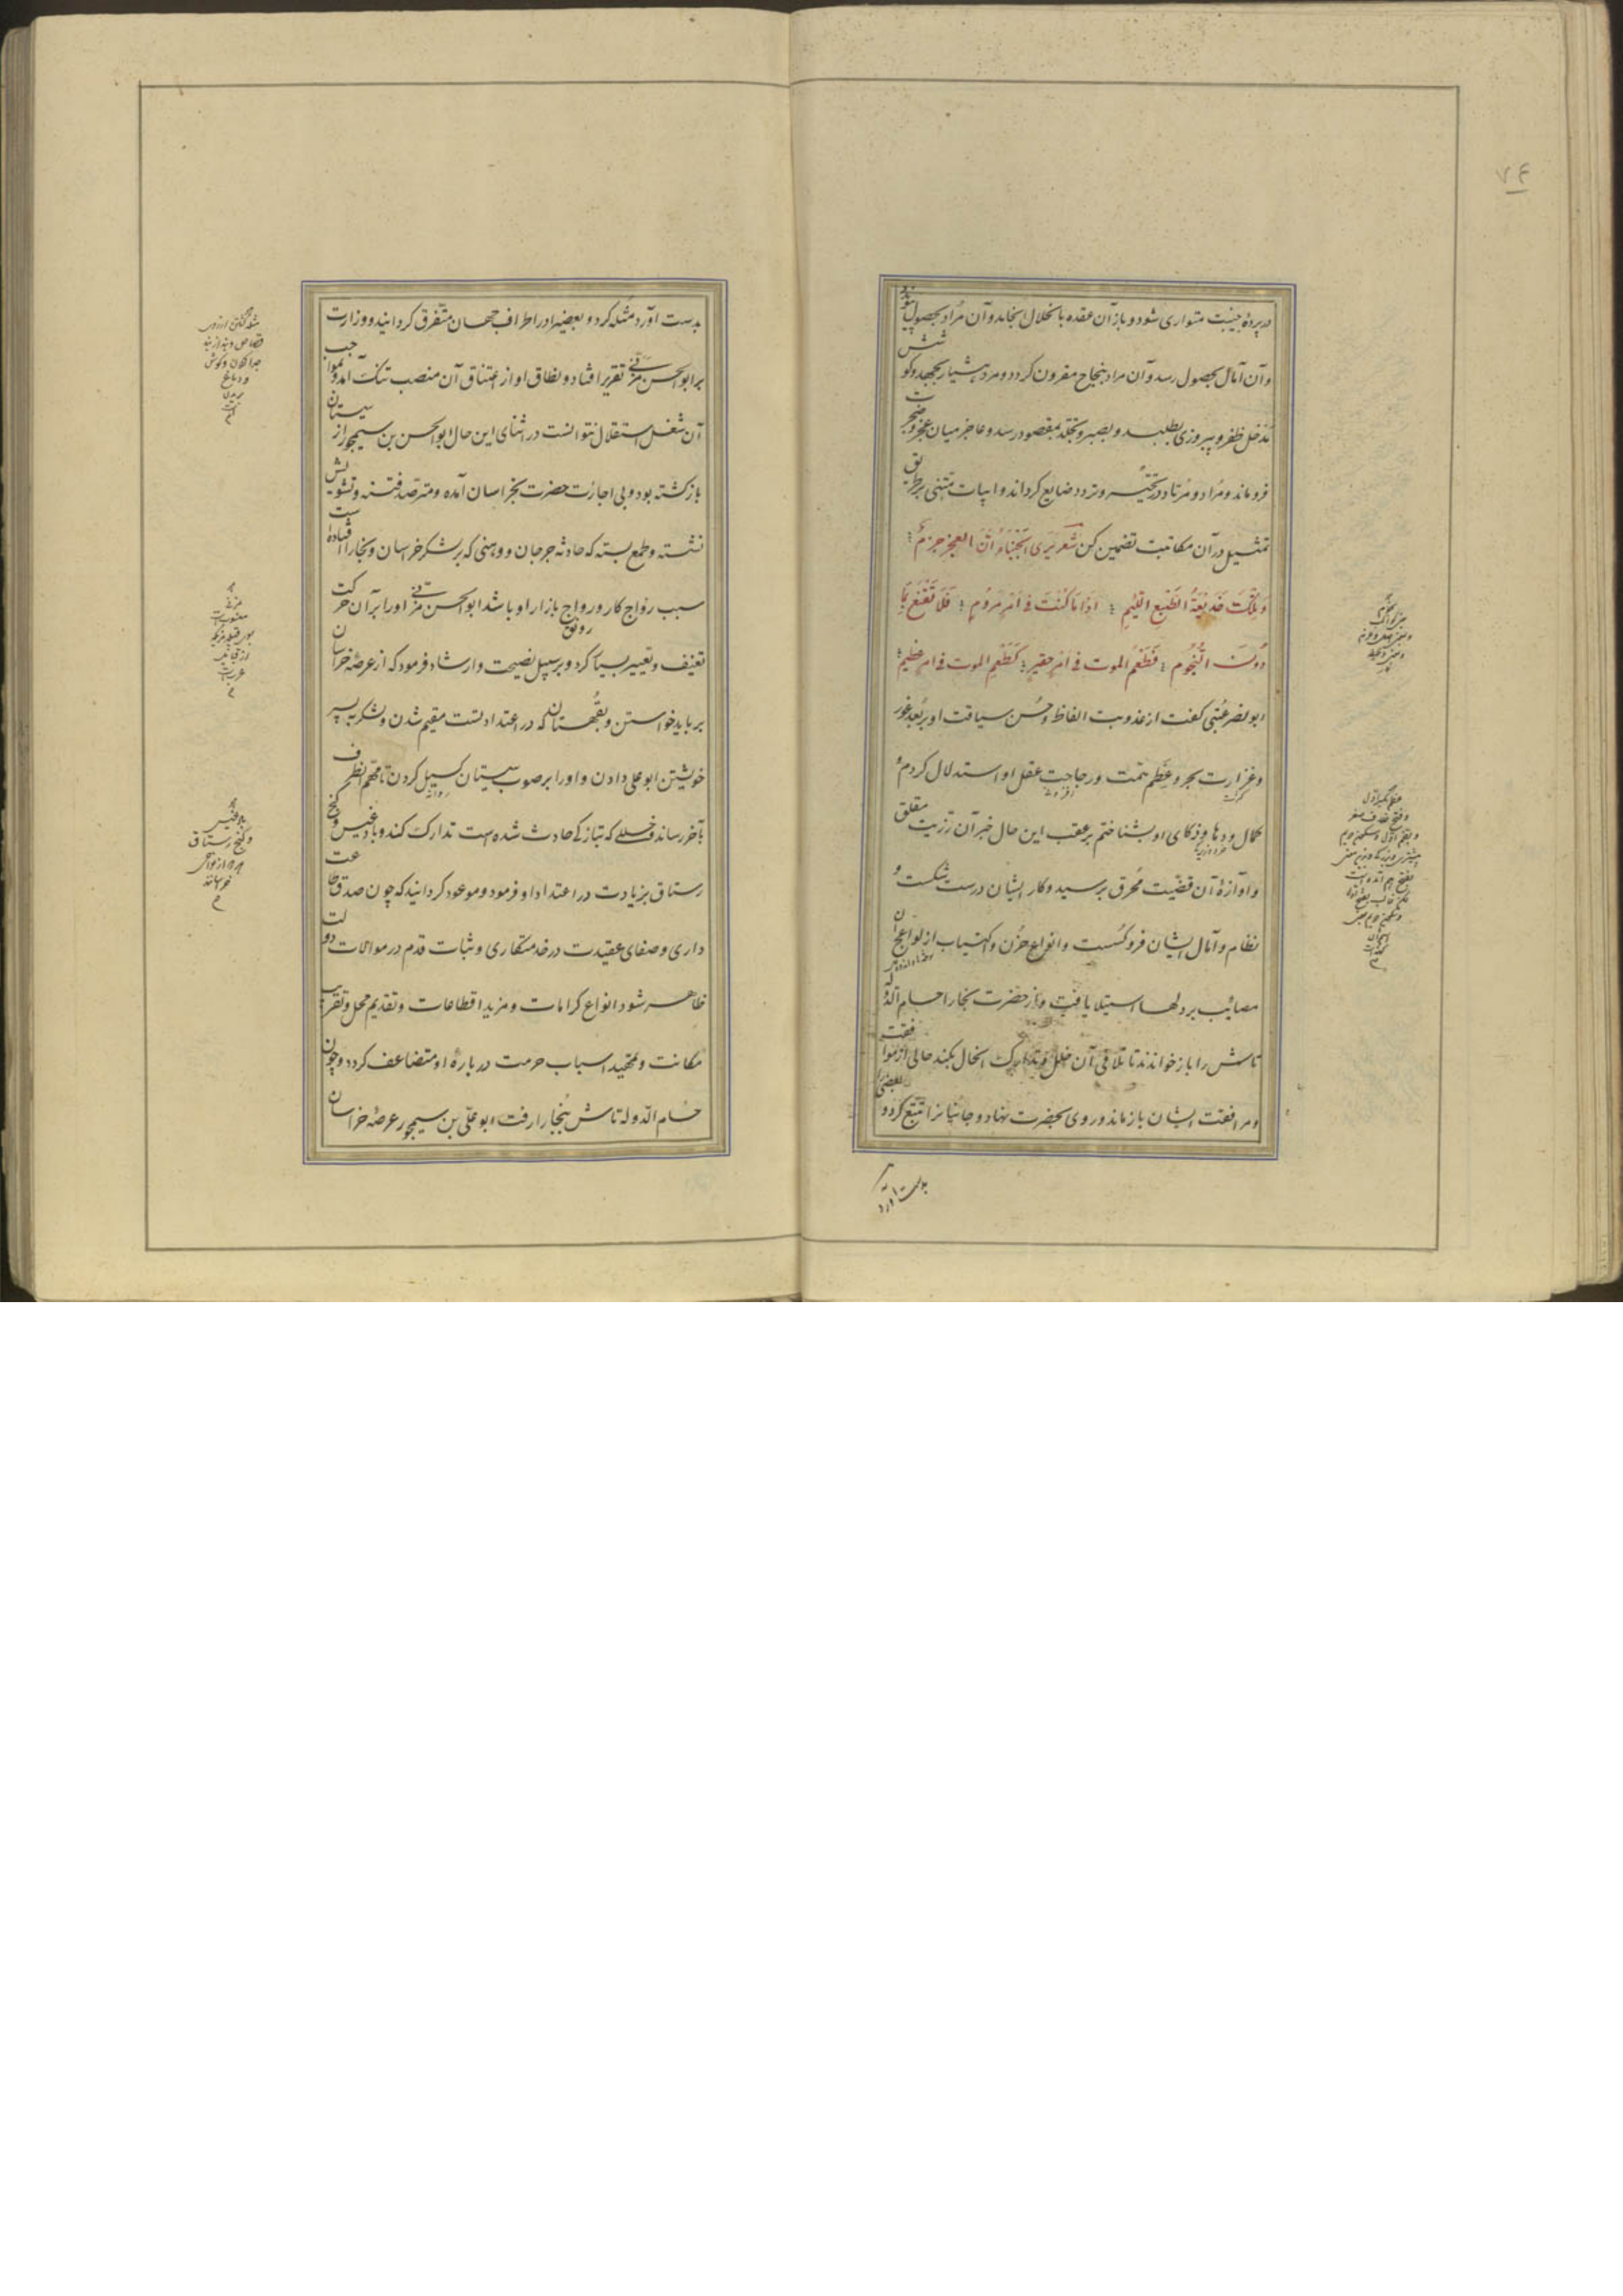 ۷۴
در پردهٔ خیبت متواری شود و باز آن عقده بانحلال انجامد و آن مراد بحصول پیوندد
و آن آمال بحصول رسد و آن مراد بنجاح مقرون کردد و مرد هشیار بجهد و کوشش
مدخل ظفر و پیروزی بطلبد و بصبر و تجلد بمقصود رسد و عاجز میان عجز و ضجرت
فروماند و مراد و مرتاد در تحیر و تردد ضایع کرداند و ابیات متنبی بر طریق
تمثیل در آن مکاتبت تضمین کن شعر یری الجبناء أن العجز حزم
وتلك خديعة الطبع اللئيم : اذا ما كنت في امر مروم : فلا تقنع بما
دون النجوم : فطعم الموت في امر حقير : كطعم الموت في امر عظيم :
ابو نصر عتبی کفت از عذوبت الفاظ و حسن سیاقت او و بعد غور
و غزارت بحر و عظم همت و رجاحت عقل او استدلال کردم و
کمال و دها و ذکای او بشناختم بر عقب این حال خبر آن رزیت مقلق
و آوازهٔ آن قضیت محرق برسید و کار ایشان درست شکست و
نظام و آمال ایشان فرو کسست و انواع حزن و اکتیاب از لواعج آن
مصائب بر دلها استیلا یافت و از حضرت بخارا حسام الدوله
تاش را باز خواندند تا تلافی آن خلل و تدارک آنحال بکند حالی از موافقت
و مرافقت ایشان بازماند و روی بحضرت نهاد و جانیانرا تتبع کرد و بعضی را
بدست آورد
بدست آورد مثله کرد و بعضیرا در اطراف جهان متفرق کردانید و وزارت
بر ابو الحسن مزنی تقریر افتاد و نطاق او از اعتناق آن منصب تنک آمد و بمواجب
آن شغل استقلال نتوانست در اثنای این حال ابو الحسن بن سیمجور از سیستان
بازکشته بود و بی اجازت حضرت بخراسان آمده و مترصد فتنه و تشویش
نشسته و طمع بسته که حادثه جرجان و وهنی که بر لشکر خراسان و بخارا افتاده است
سبب رواج کار و رواج بازار او باشد ابو الحسن مزنی او را بر آن حرکت
رونق
تعنیف و تعییر بسیار کرد و بر سبیل نصیحت و ارشاد فرمود که از عرصهٔ خراسان
بر باید خواستن و بقهستان که در اعتداد تست مقیم شدن و لشکر به پسر
خویشتن ابو علی دادن و او را بر صوب سیستان کسیل کردن تا مهم آنطرف
بآخر رساند و خللی که بتازکی حادث شده است تدارک کند و بادغیس و کنج
رستاق بزیادت در اعتداد او فرمود و موعود کردانید که چون صدق طاعت
داری و صفای عقیدت در خدمتکاری و ثبات قدم در موالات دولت
ظاهر شود انواع کرامات و مزید اقطاعات و تقدیم محل و تقریب
مکانت و تمهید اسباب حرمت در باره او متضاعف کردد و چون
حسام الدوله تاش ببخارا رفت ابو علی بن سیمجور عرصهٔ خراسان
بادغیس
و کنج رستاق